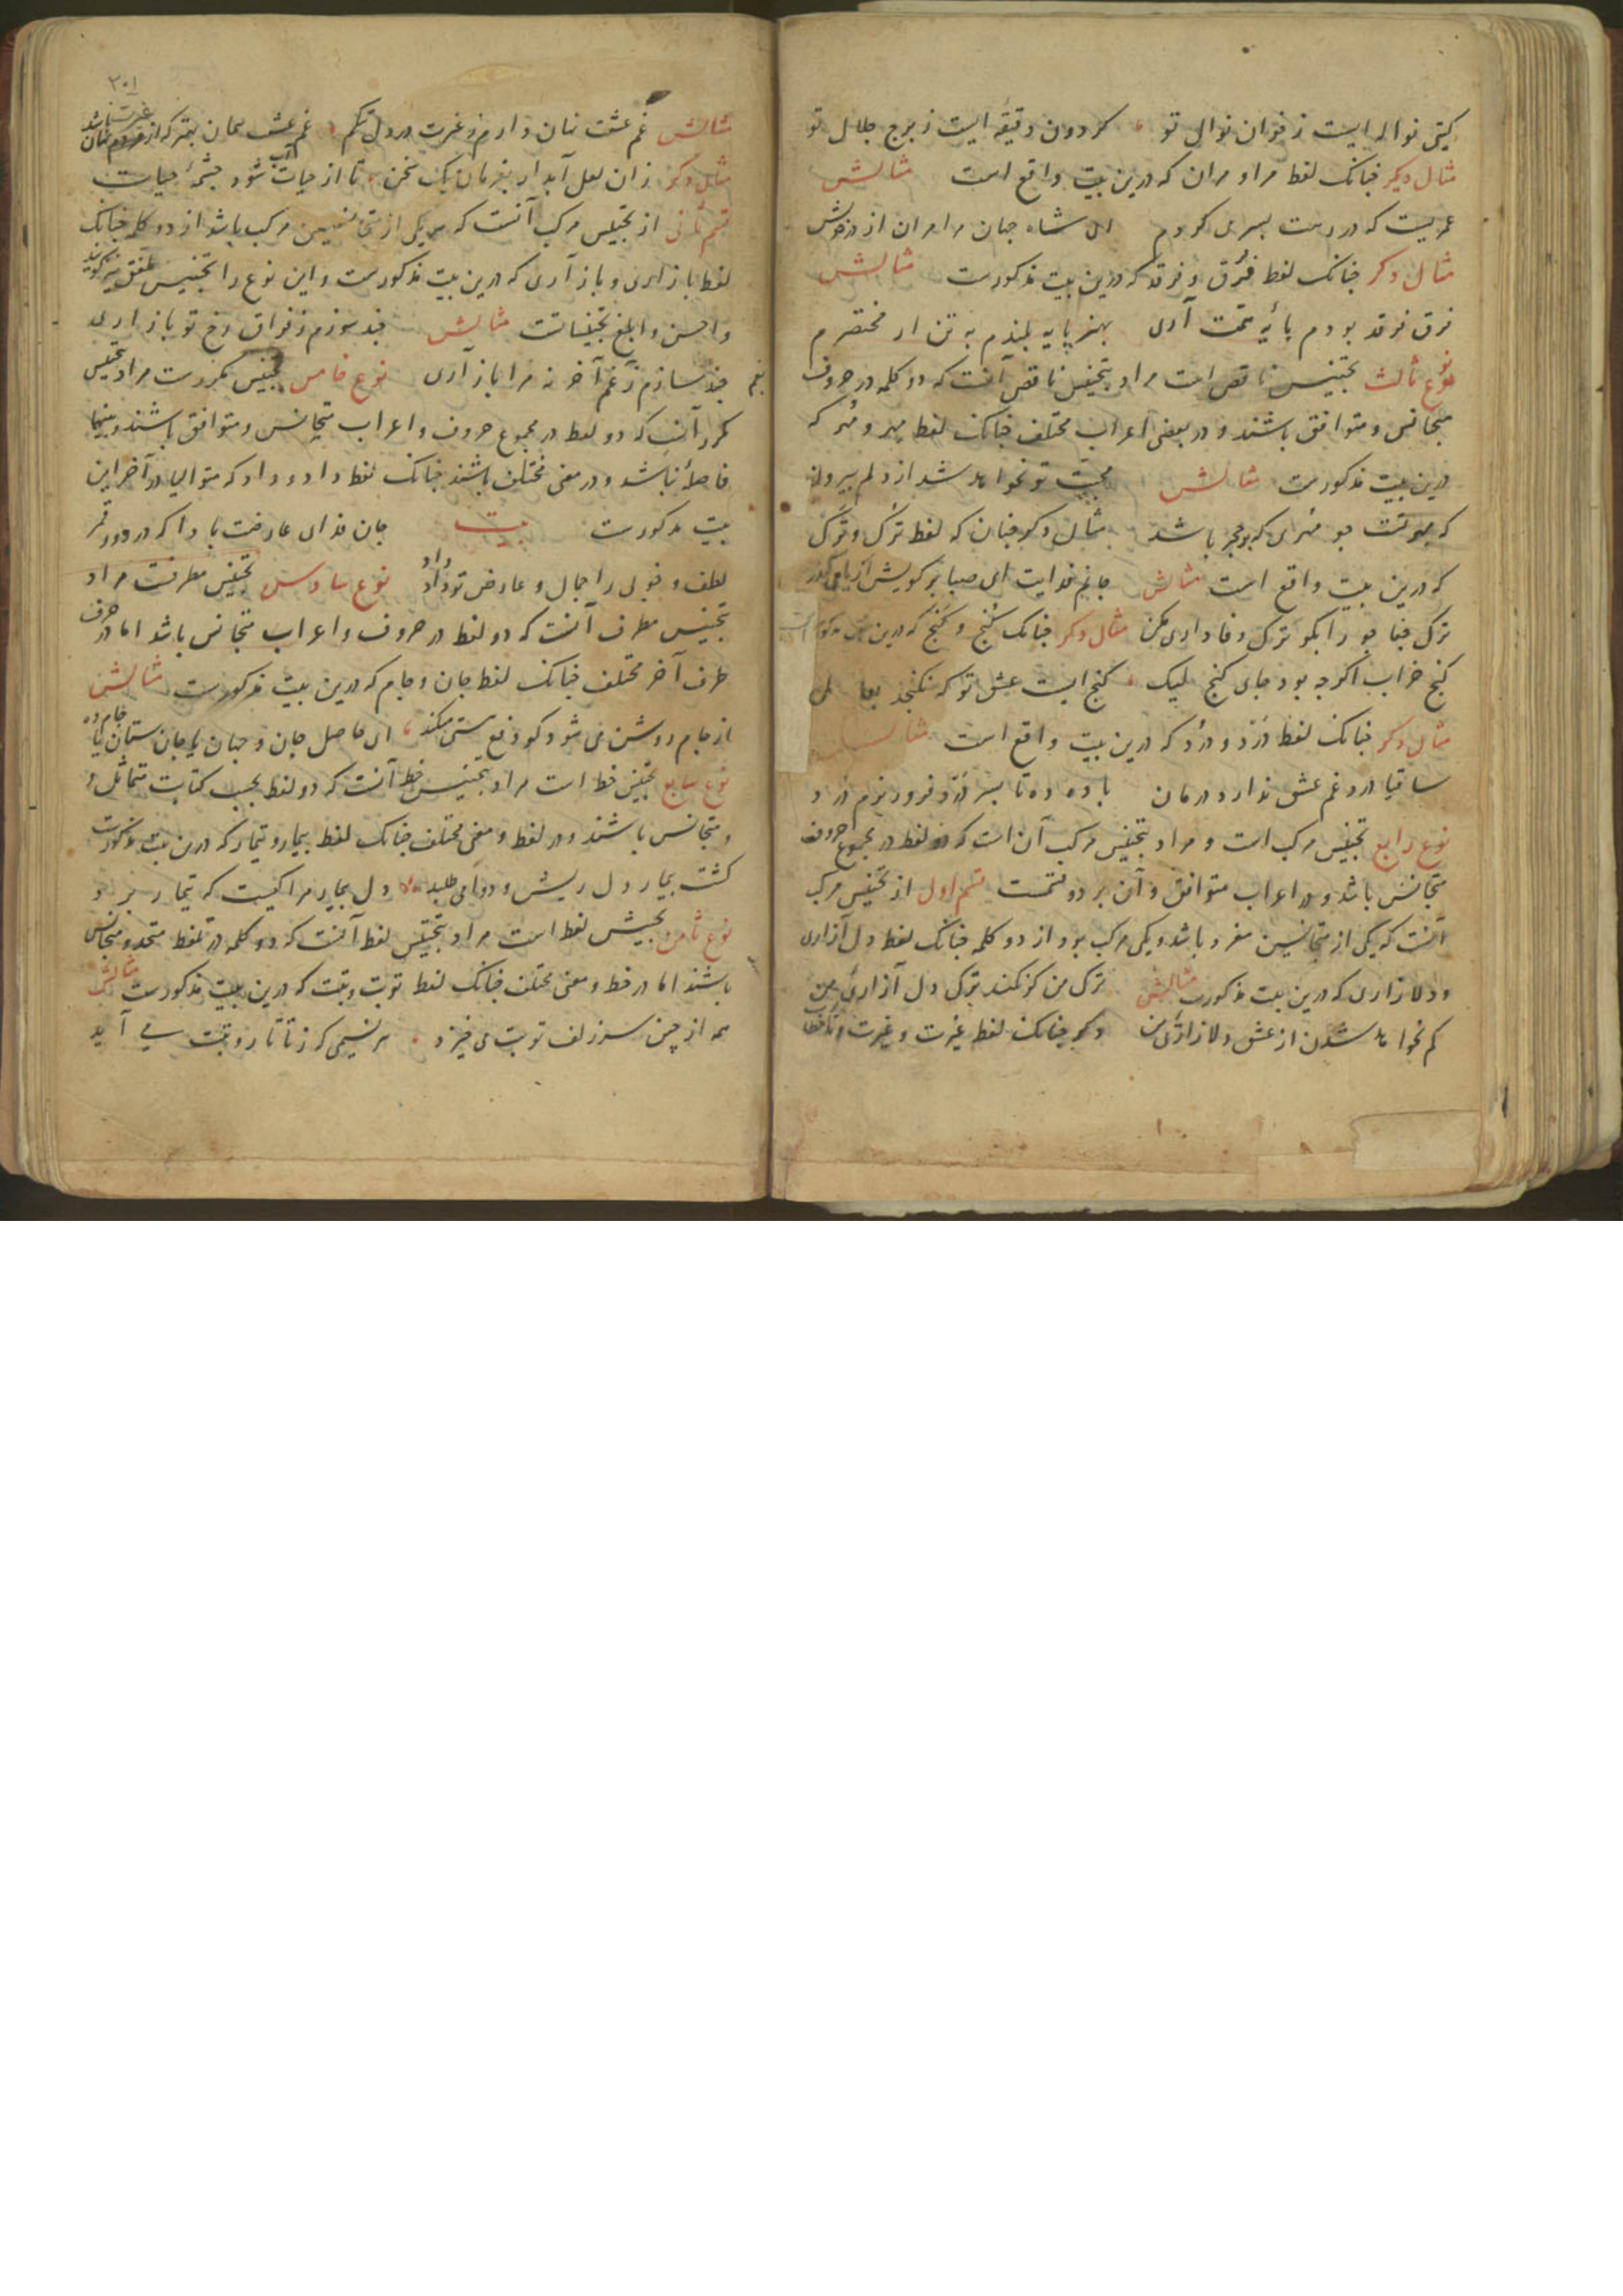 گیتی نواله ایست ز خوان نوال تو گردون دقیقه ایست ز برج جلال تو
مثال دیگر چنانک لفظ مرا و مران که درین بیت واقع است مثالش
عمریست که در رهت بسری کردم ای شاه جهان مرا مران از در خویش
مثال دکر چنانک لفظ فرق و فرقد که درین بیت مذکورست مثالش
فرق فرقد بودم پایه همت آری بهنر پایه بلندم به تن ار مختصرم
نوع ثالث تجنیس ناقص است مراد بتجنیس ناقص آنست که دو کلمه در حروف
متجانس و متوافق باشند و در بعضی اعراب مختلف چنانک لفظ مهر و مُهر که
درین بیت مذکورست مثالش محبت تو نخواهد شد از دلم بیرون
که مهر تست چو مُهری که بر حجر باشد مثال دکر چنان که لفظ تُرک و تَرک
که درین بیت واقع است مثالش جانم فدایت ای صبا بر کویش ار یابی گذر
ترک جفا جو را بگو ترک وفاداری مکن مثال دکر چنانک کُنج و گنج که درین بیت مذکورست
کنج خراب اگرچه بود جای گنج لیک گنج ایست عشق تو که نگنجد
مثال دکر چنانک لفظ دَرد و دُرد که درین بیت واقع است مثالش
ساقیا درد غم عشق ندارد درمان باده ده تا بسر درد فرو ریزم درد
نوع رابع تجنیس مرکب است و مراد بتجنیس مرکب آن است که دو لفظ در مجموع حروف
متجانس باشد و در اعراب متوافق و آن بر دو قسمست قسم اول از تجنیس مرکب
آنست که یکی از متجانسین مفرد باشد و یکی مرکب بود از دو کلمه چنانک لفظ دل آزاری
و دلازاری که درین بیت مذکورست مثالش ترک من گر نکند ترک دل آزاری من
کم نخواهد شدن از عشق دلازاری من دکر چنانک لفظ غیرت و غیرت
۲۰۱
مثالش غم عشقت نهان دارم ز غیرت در دل تنگم غم عشقت همان بهتر که از مردم نهان غیرت باشد
مثال دکر زان لعل آبدار بفرمان یک سخن تا از حیات آب شود چشمهٔ حیات
قسم ثانی از تجنیس مرکب آنست که هر یکی از متجانسین مرکب باشد از دو کلمه چنانک
لفظ بازاری و باز آری که درین بیت مذکورست و این نوع را تجنیس ملفق نیز گویند
و احسن و ابلغ تجنیساتست مثالش چند سوزم ز فراق رخ تو بازاری
چند سازم ز غم آخر نه مرا باز آری نوع خامس تجنیس مکررست مراد بتجنیس
مکرر آنست که دو لفظ در مجموع حروف و اعراب متجانس و متوافق باشند و بینهما
فاصله نباشد و در معنی مختلف باشند چنانک لفظ داد و داد که متوالی در آخر این
بیت مذکورست بیت جان فدای عارضت بادا که در دور قمر
لطف و خوبی را جمال و عارض تو داد داد نوع سادس تجنیس مطرفست مراد
بتجنیس مطرف آنست که دو لفظ در حروف و اعراب متجانس باشد اما در حرف
طرف آخر مختلف چنانک لفظ جان و جام که درین بیت مذکورست مثالش
از جام روشن می شود کو دفع مستی میکند ای حاصل جان و جهان یا جان ستان یا جام ده
نوع سابع تجنیس خط است مراد بتجنیس خط آنست که دو لفظ بحسب کتابت متماثل
و متجانس باشند و در لفظ و معنی مختلف چنانک لفظ بیمار و تیمار که درین بیت مذکورست
کشت بیمار دل ریش و دوا می طلبد دل بیمار مرا کیست که تیمار برد
نوع ثامن تجنیس لفظ است مراد بتجنیس لفظ آنست که دو کلمه در تلفظ متحد و متجانس
باشند اما در خط و معنی مختلف چنانک لفظ توبت و تبت که درین بیت مذکورست مثالش
همه از چین سر زلف توبت می خیزد هر نسیمی که ز تاتار و تبت می آید